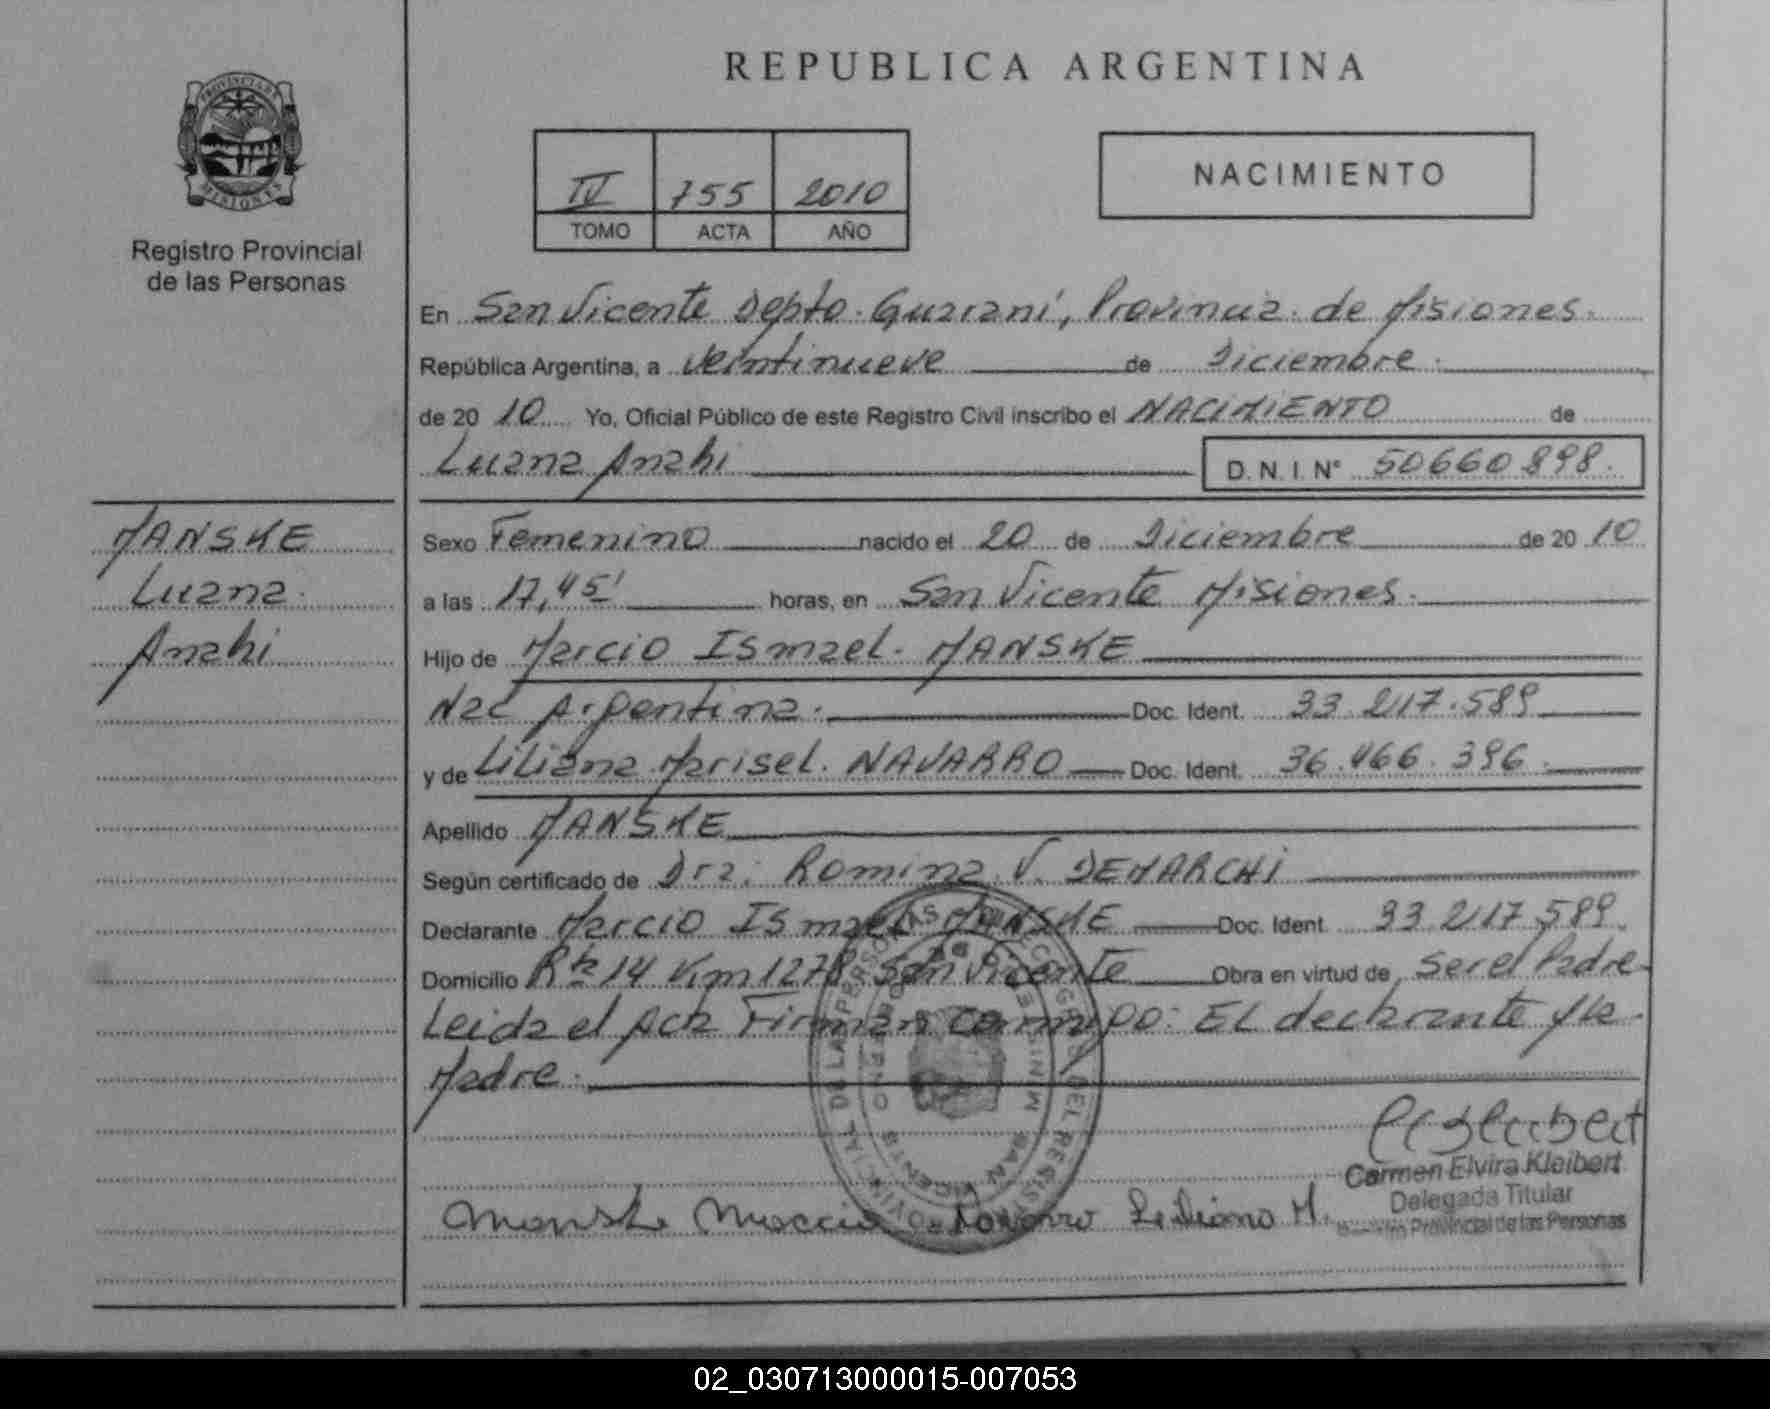 REPUBLICA ARGENTINA
PROVINCIA DE
MISIONES
Registro Provincial
de las Personas
IV 755 2010
TOMO ACTA AÑO
NACIMIENTO
En San Vicente Depto. Guaraní, Provincia de Misiones.
República Argentina, a veintinueve de Diciembre.
de 20 10 Yo, Oficial Público de este Registro Civil inscribo el NACIMIENTO de
Luana Anahi D.N.I. Nº 50660898.
MANSKE
Luana.
Anahi
Sexo Femenino nacido el 20 de Diciembre de 20 10
a las 17,45' horas, en San Vicente Misiones.
Hijo de Marcio Ismael. MANSKE
Nac Argentina. Doc. Ident. 33.217.589
y de Liliana Marisel. NAVARRO Doc. Ident. 36.466.396.
Apellido MANSKE
Según certificado de Dra: Romina V. DEMARCHI
Declarante Marcio Ismael MANSKE Doc. Ident. 33.217.589.
Domicilio Rta 14 Km 1278 San Vicente Obra en virtud de ser el Padre
Leida el Acta Firman conmigo: El declarante y la
Madre.
Carmen Elvira Kleibert
Delegada Titular
Provincial de las Personas
Manske Marcio Navarro Liliana M.
02_030713000015-007053